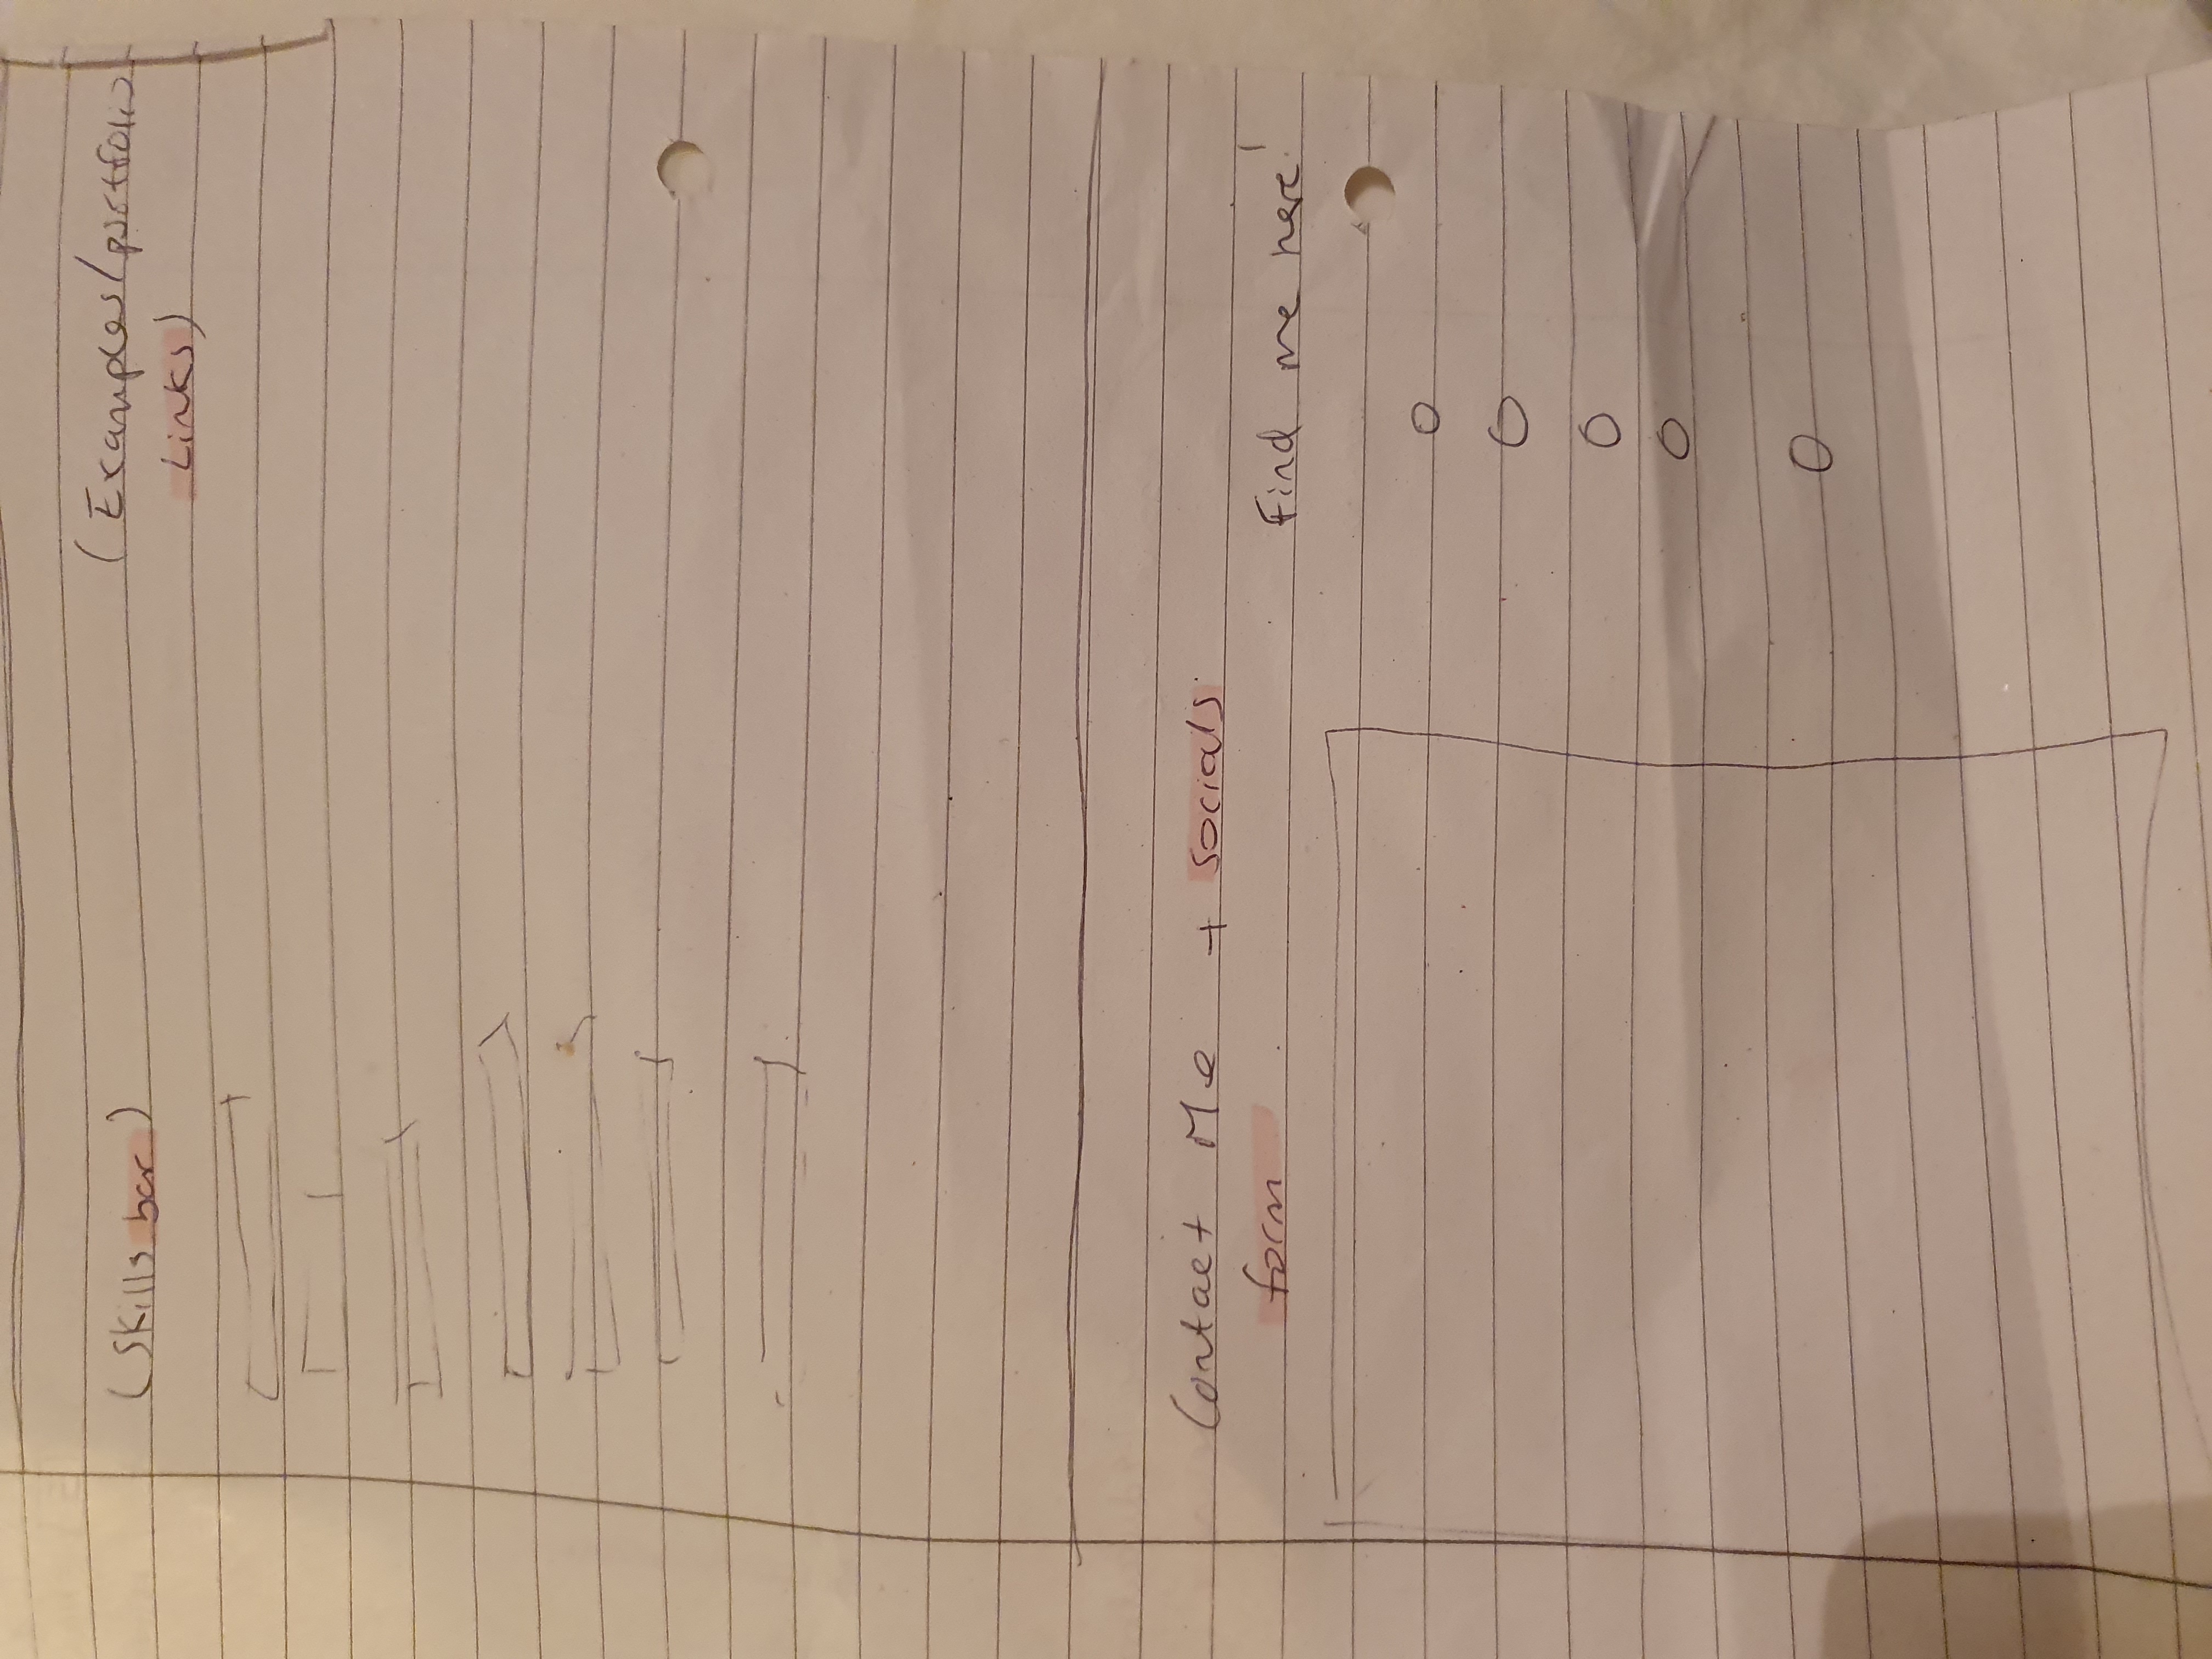 (Skills bar)
(Examples/portfolio
Links)
Contact Me + socials
form
Find me here!